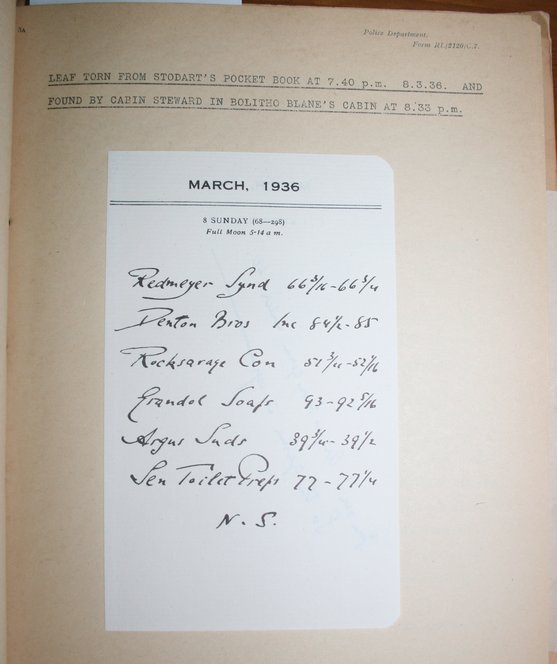 3A
Police Department.
Form RL/2120/C.7.
LEAF TORN FROM STODART'S POCKET BOOK AT 7.40 p.m. 8.3.36. AND
FOUND BY CABIN STEWARD IN BOLITHO BLANE'S CABIN AT 8.33 p.m.
MARCH, 1936
8 SUNDAY (68—298)
Full Moon 5·14 a m.
Redmeyer Synd 66 5/16 - 66 3/4
Denton Bros Inc 84 1/2 - 85
Rocksavage Con 51 3/4 - 52 1/16
Grandol Soaps 93 - 92 5/16
Argus Suds 39 3/4 - 39 1/2
Sen Toilet Preps 77 - 77 1/4
N. S.